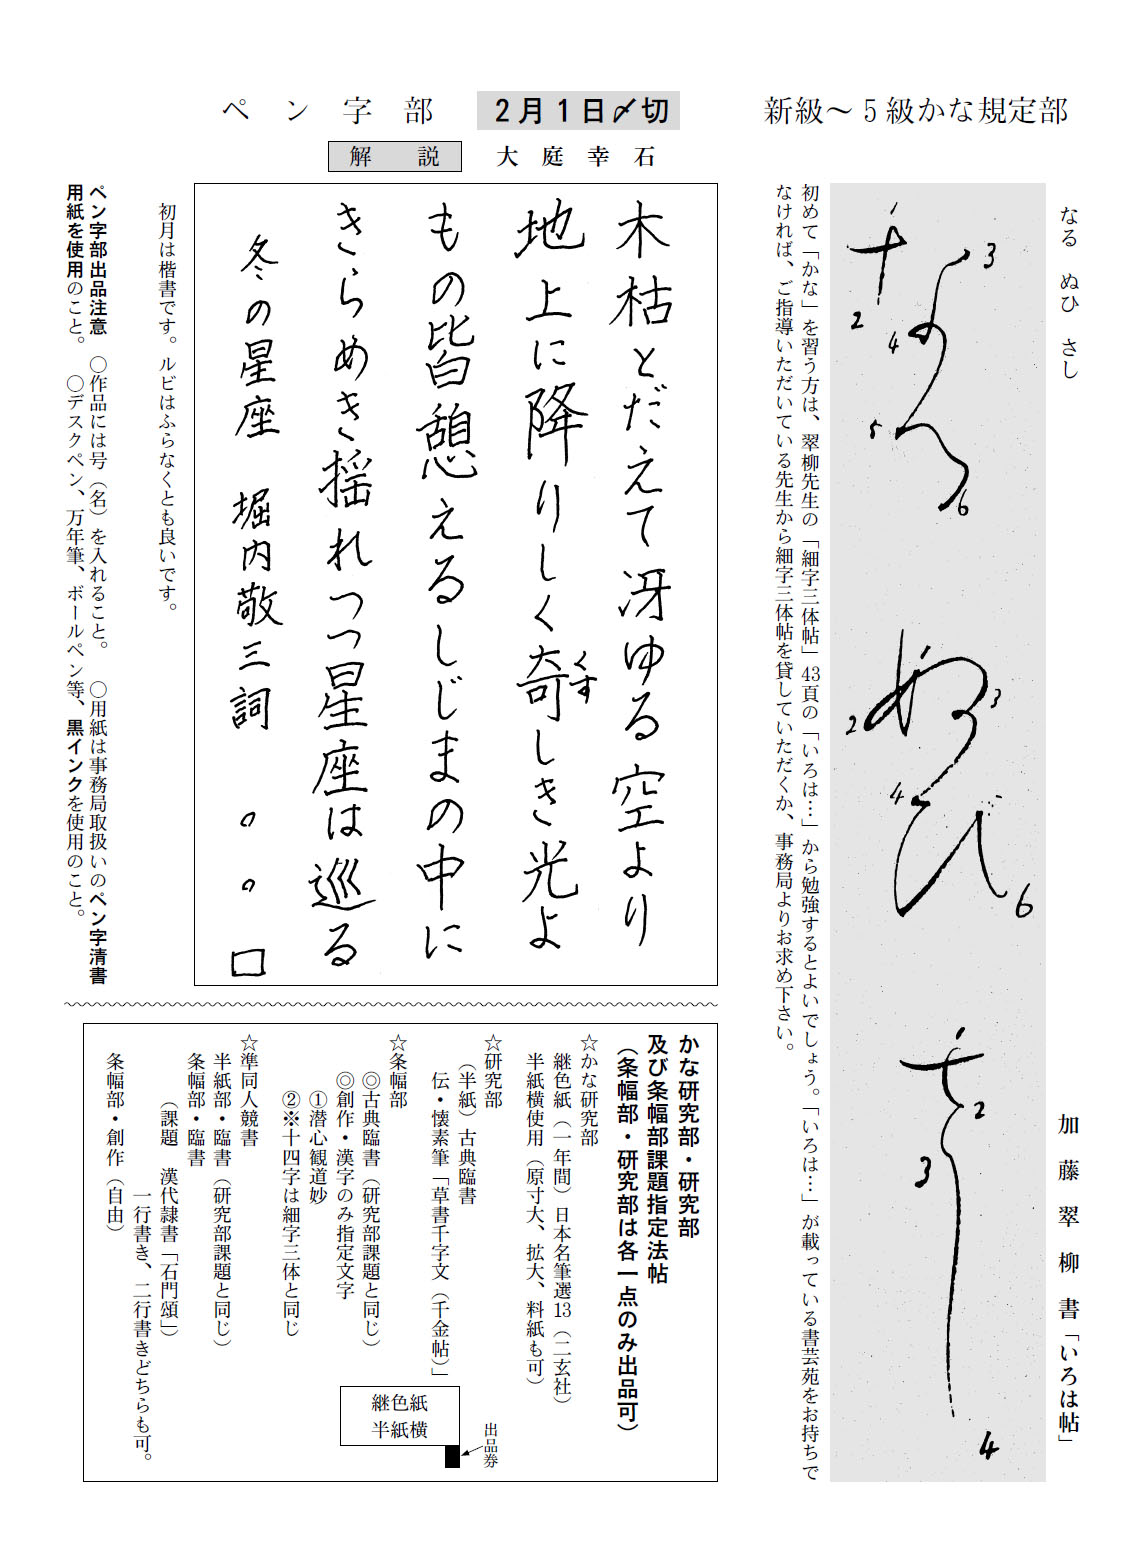 新級～5級かな規定部
なる　ぬひ　さし
加藤翠柳書「いろは帖」
1
2
3
4
5
6
なる
2
3
4
6
ぬひ
2
3
4
さし
初めて「かな」を習う方は、翠柳先生の「細字三体帖」43頁の「いろは…」から勉強するとよいでしょう。「いろは…」が載っている書芸苑をお持ちで
なければ、ご指導いただいている先生から細字三体帖を貸していただくか、事務局よりお求め下さい。
ペン字部　2月1日〆切
解説　大庭幸石
木枯とだえて冴ゆる空より
地上に降りしく奇しき光よ
くす
もの皆憩えるしじまの中に
きらめき揺れつつ星座は巡る
冬の星座　堀内敬三詞　。。□
初月は楷書です。ルビはふらなくとも良いです。
ペン字部出品注意　〇作品には号（名）を入れること。　〇用紙は事務局取扱いのペン字清書
用紙を使用のこと。　〇デスクペン、万年筆、ボールペン等、黒インクを使用のこと。
かな研究部・研究部
及び条幅部課題指定法帖
（条幅部・研究部は各一点のみ出品可）
☆かな研究部
継色紙（一年間）日本名筆選13（二玄社）
半紙横使用（原寸大、拡大、料紙も可）
☆研究部
（半紙）古典臨書
伝・懐素筆「草書千字文（千金帖）」
☆条幅部
◎古典臨書（研究部課題と同じ）
◎創作・漢字のみ指定文字
①潜心観道妙
②※十四字は細字三体と同じ
☆準同人競書
半紙部・臨書（研究部課題と同じ）
条幅部・臨書
（課題　漢代隷書「石門頌」）
一行書き、二行書きどちらも可。
条幅部・創作（自由）
継色紙
半紙横
出品券